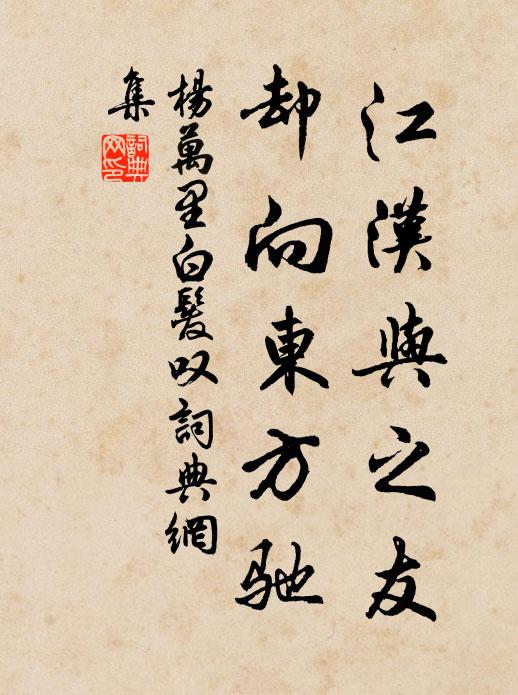 江漢與之友
却向東方馳
楊萬里白髮叹詞典網
集
詞典网印